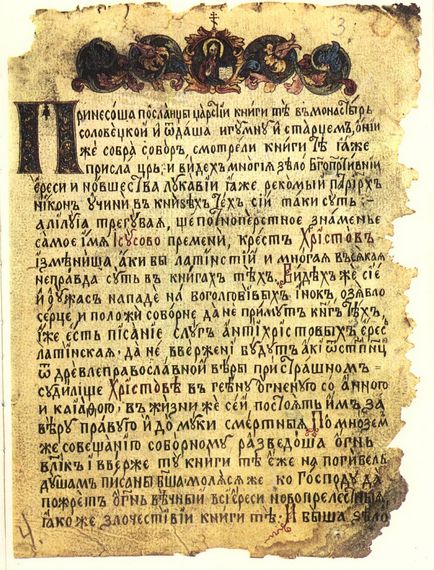 3
Принесоша посланцы царстіи книги тѣ в монастырь
соловецкой и ѿдаша игумну и старцемъ, ѻни
же собра соборъ, смотрели книги тѣ ꙗже
присла црь, и видехъ многія зѣло бгопротивніи
ереси и новшества лукавіи ꙗже, рекомый патріархъ
никонъ учини в кнізѣхъ тѣхъ, сій таки суть:
алілуіа трегубая, шепоноперстное знаменье
самое імя Ісусово пременй, крестъ Христовъ
ізмѣниша аки бы латінстій и многая всякая
неправда суть в книгах тѣхъ. Видѣхъ же сіе
й оужасъ нападе на боголюбівыхъ інокъ, озябло
сердце, и положи соборне да не примутъ кнігъ тѣхъ,
іже есть пісаніе слугъ антіхрістовыхъ ересь
латінская. да не ввержені будутъ акі ѿстꙋпнцы
ѿ древлеправославной вѣры при страшномъ
судиліще Христовѣ в геѣну огненуго со анного
и каіафого, в жизни же сей постоять имъ за
вѣру правуго и до муки смертныя По мнозем
же совещаніго соборному разведоша огнь
влікъ і вверже ту книги тѣ еже на погибель
душамъ писаны бша моляся же ко Господу да
пожретъ огнь вѣчный вси ереси новопрелесныя
ꙗкоже злочестівіи книги тѣ. И быша зѣло
4